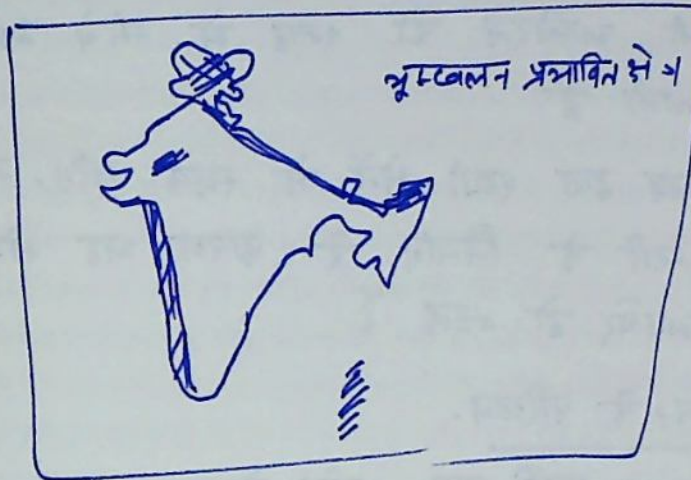 भूस्खलन प्रभावित क्षेत्र